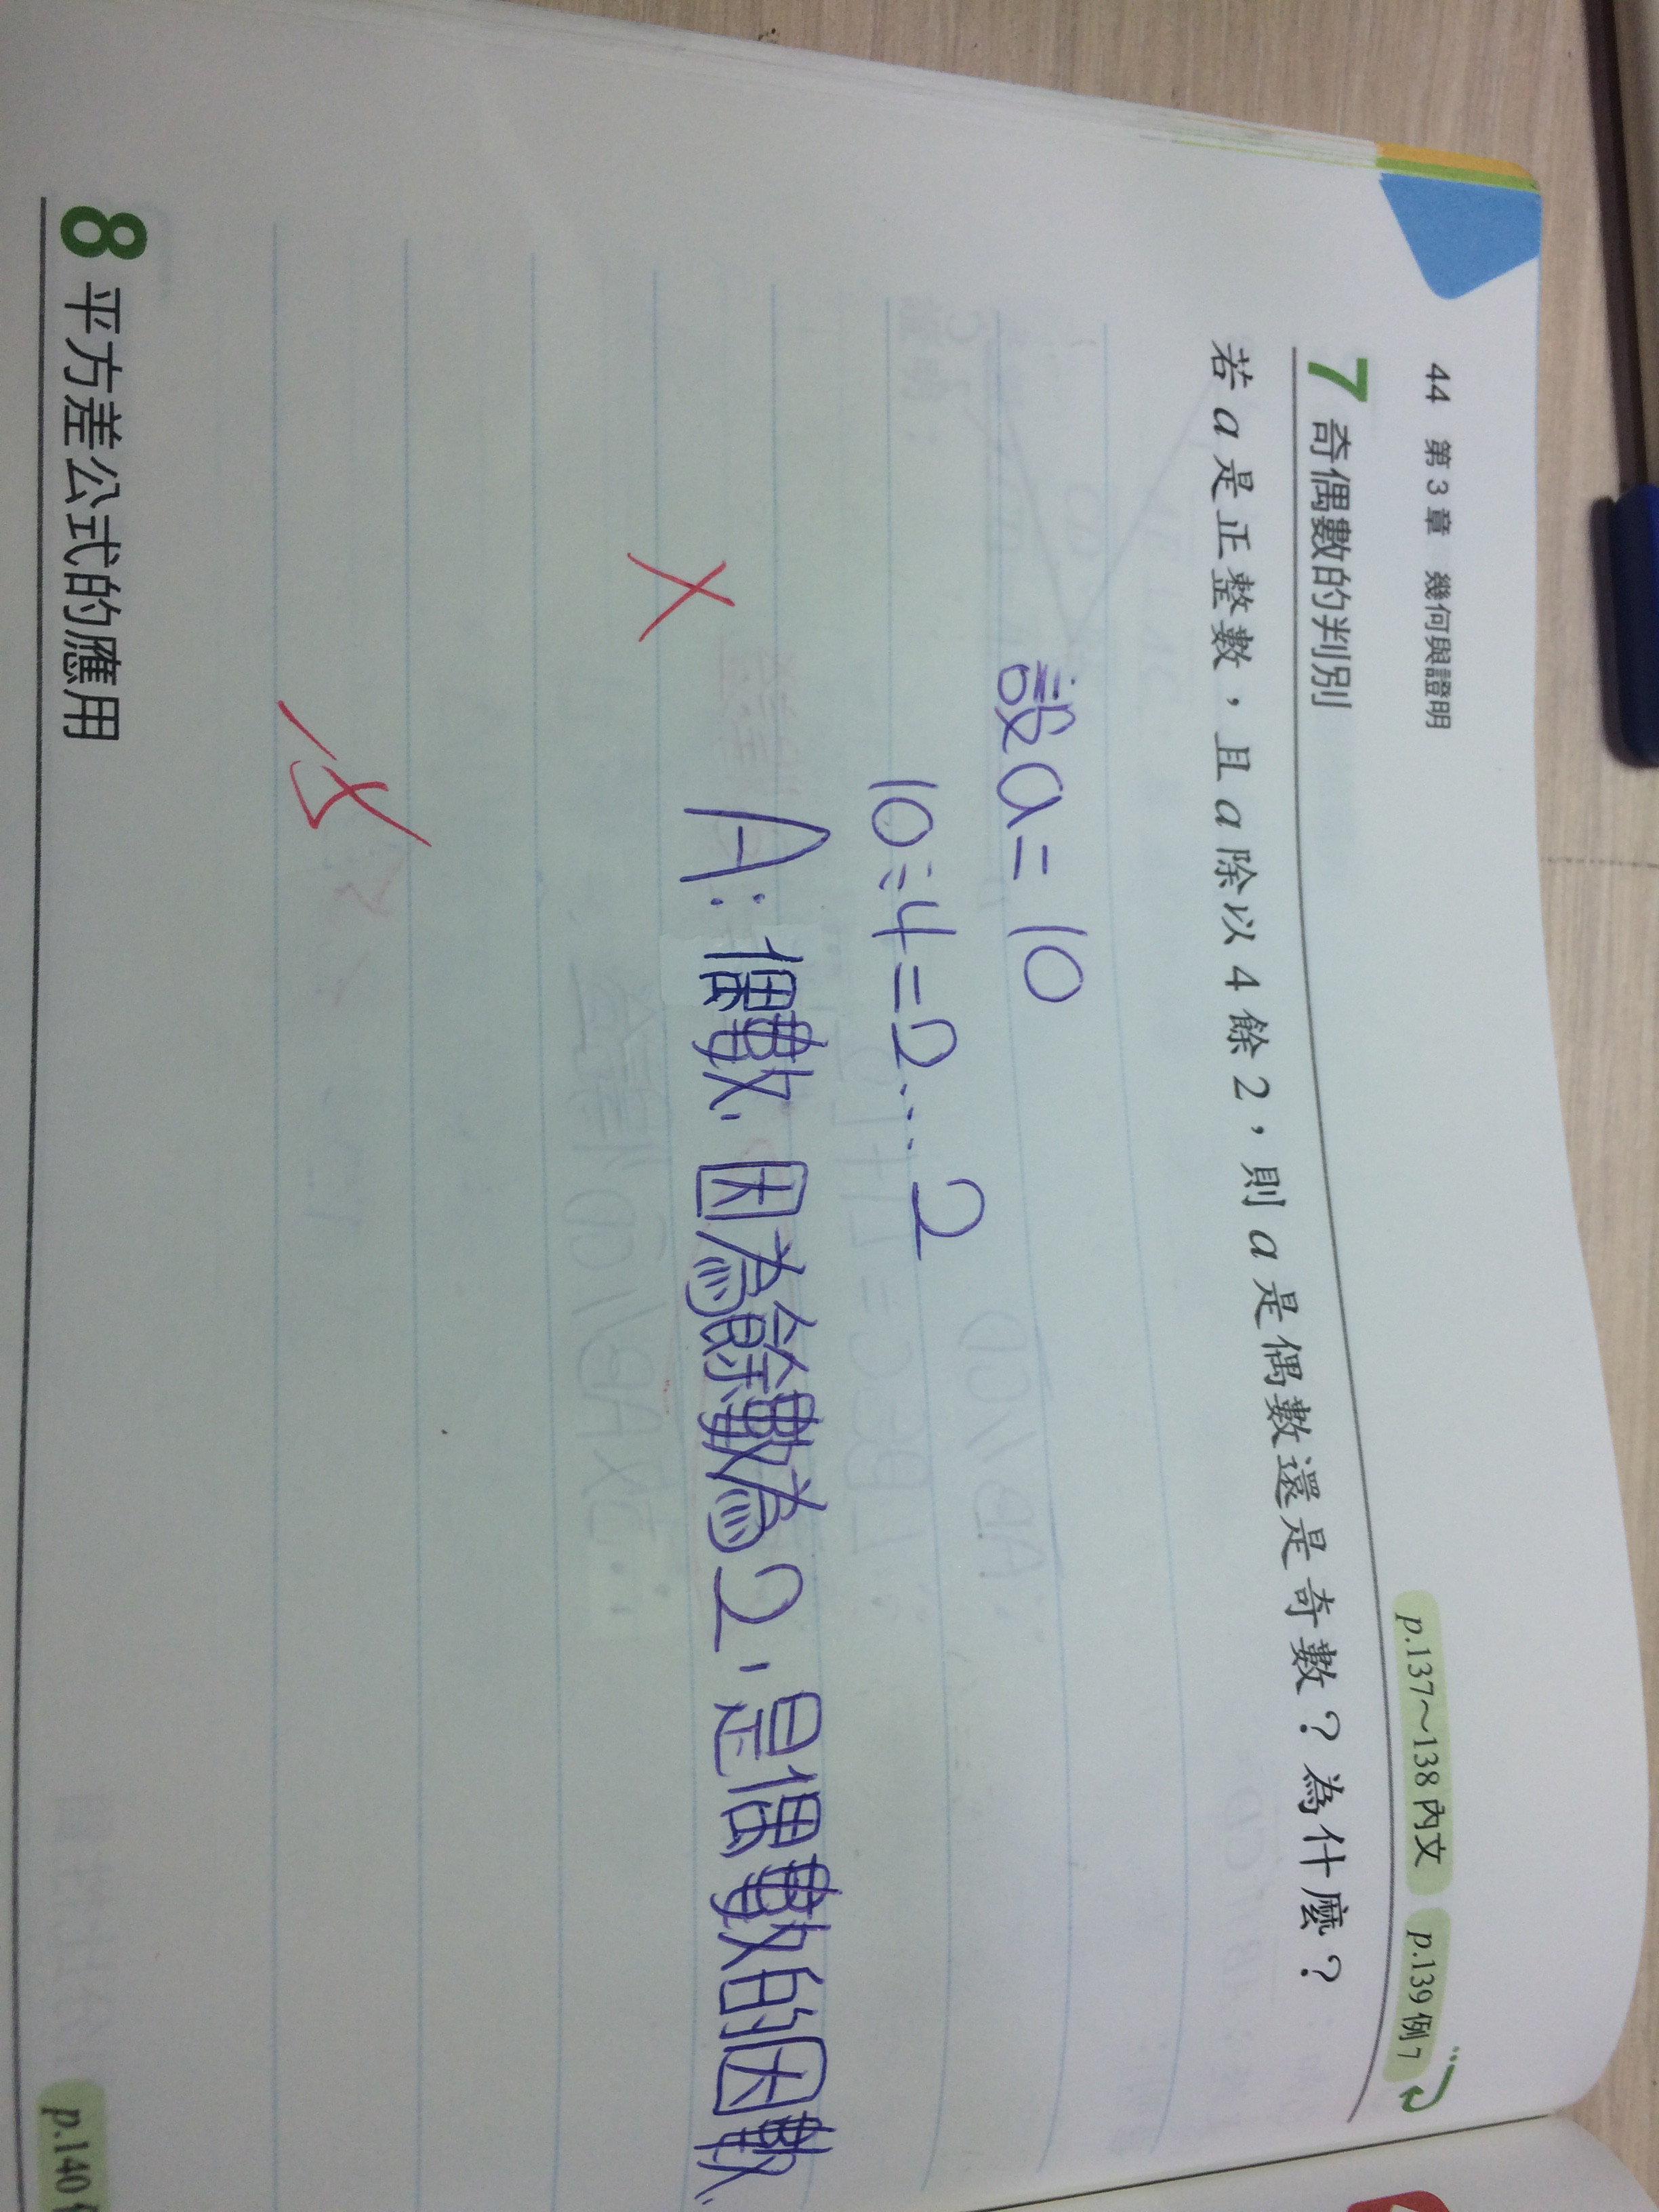 44 第3章 幾何與證明
7 奇偶數的判別 p.137~138 內文 p.139 例7
若a是正整數,且a除以4餘2,則a是偶數還是奇數?為什麼?
設a=10
10÷4=2…2
A:偶數,因為餘數為2,是偶數的因數
8 平方差公式的應用 p.140